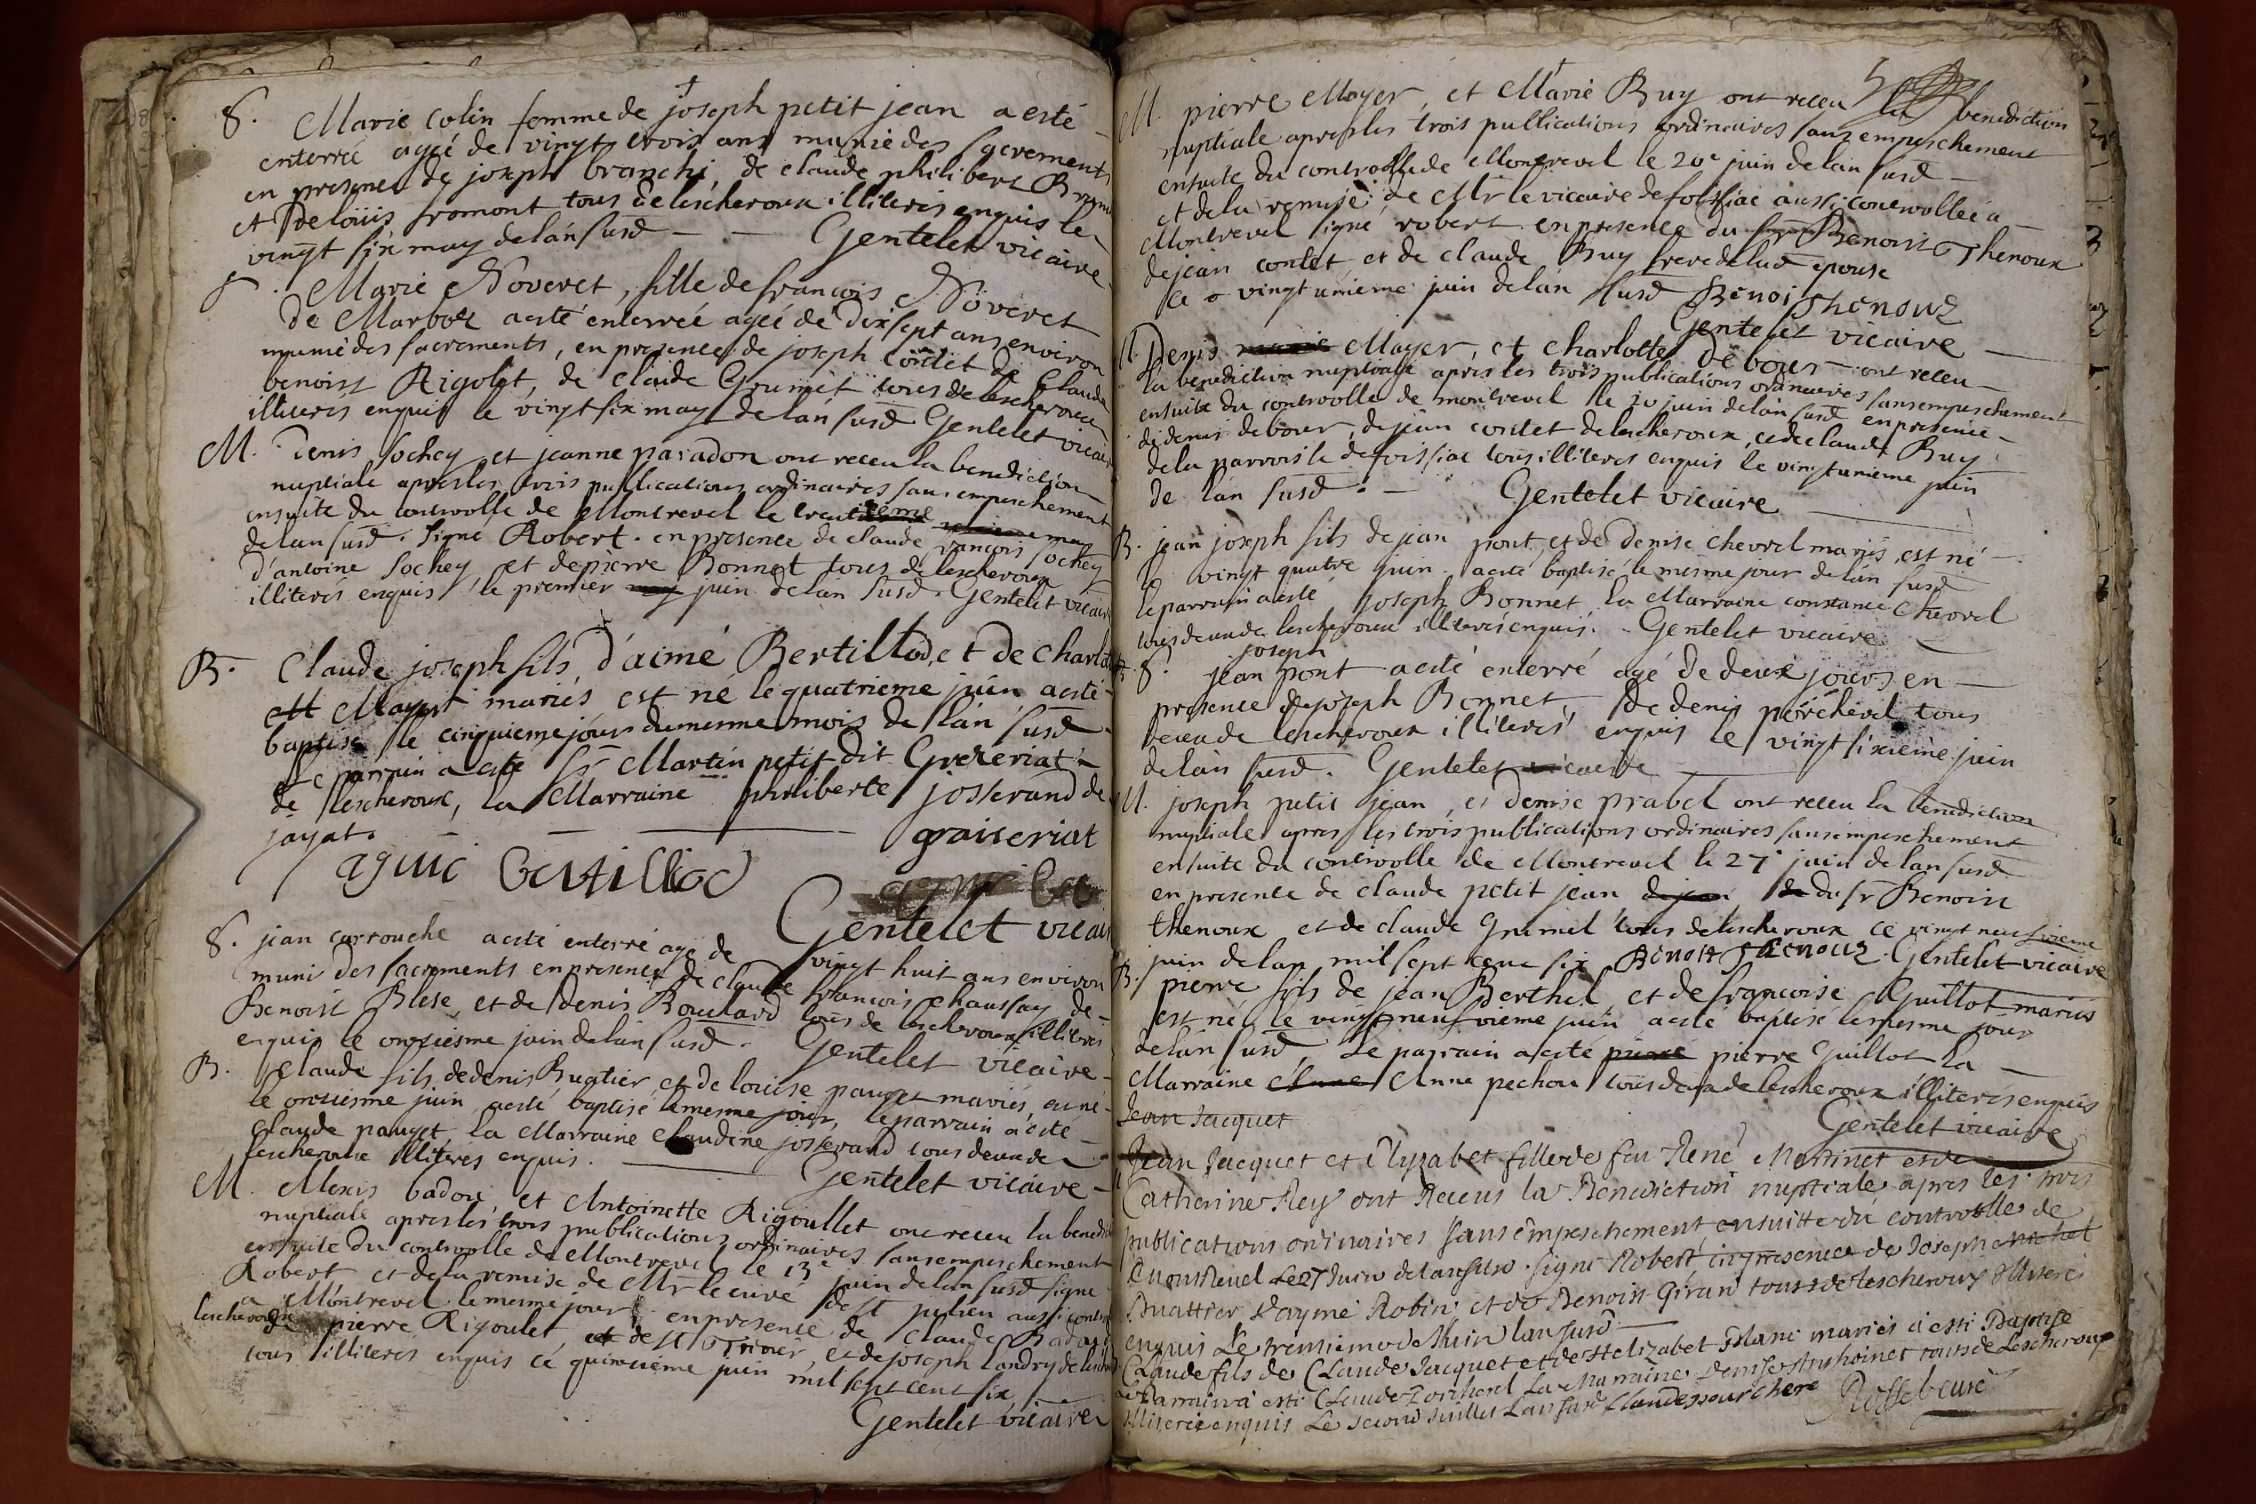 8. Marie Colin femme de joseph petit jean a esté
enterrée agée de vingt trois ans munie des sacrements
en presence de joseph branchi, de claude philibert
et de loüis fromont tous de lescheroux illiterés enquis le
vingt six may de lan susd Gentelet vicaire
8. Marie Noveret, fille de francois Noveret
de Marboz a esté enterrée agée de dix sept ans environ
munie des sacrements, en presence de joseph contet de claude
benoist Rigolet, de claude Gourmet tous de lescheroux
illiterés enquis le vingt six may de lan susd Gentelet vicaire
M. Denis Sochey et jeanne paradon ont receu la benediction
nuptiale apres les trois publications ordinaires sans empeschement
ensuite du controolle de Montrevel le
de lan susd. Signé Robert. en presence de claude francois Sochey
d'antoine Sochey, et de pierre Bonnet tous de lescheroux
illiterés enquis, le premier juin de lan susd. Gentelet vicaire
B. Claude joseph fils d'aimé Bertillod, et de Charlo
ett Mayer mariés est né le quatrieme juin a esté
baptisé le cinquieme jour du mesme mois de lán susd
Le parrain a esté Sr Martin petit dit Grezeriat
de lescheroux, la Marraine philiberte josserand de
jayat. graiseriat
aymé bertilliod
Gentelet vicair
8. jean carrouche a esté enterré agé de vingt huit ans environ
muni des sacrements en presence de claude francois chaussay de
Benoist Blese et de denis Bouilard tous de lescheroux illiteres
enquis le onzieme juin de lán susd. Gentelet vicaire
B. Claude fils de denis Buatier et de loüise pauget mariés, est né
le onzieme juin a esté baptisé le mesme jour, le parrain a esté
claude pauget, la Marraine claudine josserand tous deux de
lescheroux illiteres enquis. Gentelet vicaire
M. Alexis badoü, et Antoinette Rigoullet ont receu la benedi
nuptiale apres les trois publications ordinaires sans empeschement
ensuite du controolle de Montrevel le 13e juin de lan susd signé
Robert et de la remise de Mr le curé de St julien aussi contro
a Montrevel le mesme jour en presence de claude
lescheroux de pierre Rigoulet, et de joseph landry de
tous illiteres enquis ce quinzieme juin mil sept cent six
Gentelet vicaire
M. pierre Mayer, et Marie Buy ont receu la benediction
nuptiale apres les trois publications ordinaires sans empeschement
ensuite du controolle de Montrevel le 20e juin de lan susd
et de la remise de Mr le vicaire de foissiac aussi controollée a
Montrevel signé robert en presence du sr Benoist Thenoux
de jean contet et de claude Buy frere de lad epouse
ce vingt unieme juin de lán susd Benoi Thenouz
Gentelet vicaire
M. Denis Mayer, et charlotte debour ont receu
la benediction nuptiale apres les trois publications ordinaires sans empeschement
ensuite du controolle de montrevel le 20 juin de lán susd en presence
de denis debour, de jean contet de lescheroux, et de claude Buy
de la parroisse de foissiac tous illiteres enquis le vingt unieme juin
de lán susd. Gentelet vicaire
B. jean joseph fils de jean pont et de denise chevrel mariés est né
le vingt quatre juin a esté baptisé le mesme jour de lán susd
le parrain a esté joseph Bonnet la Marraine constance chevrel
tous deux de lescheroux illiterés enquis. Gentelet vicaire
joseph
8. jean pont a esté enterré agé de deux jours en
presence de joseph Bonnet, de denis porchevel tous
deux de lescheroux illiterés enquis le vingt sixieme juin
de lán susd. Gentelet vicaire
M. joseph petit jean, et denise prabel ont receu la benediction
nuptiale apres les trois publications ordinaires sans empeschement
ensuite du controolle de Montrevel le 27e juin de lan susd
en presence de claude petit jean de jean de du sr Benoist
thenoux et de claude Grumel tous de lescheroux ce vingt neufvieme
juin de lan mil sept cent six Benoit Thenouz Gentelet vicaire
B. pierre fils de jean Berthel, et de francoise Guillot mariés
est né le vingt neufvieme juin a esté baptisé le mesme jour
de lán susd, Le parrain a esté pierre pierre Guillot la
Marraine Anne pechou tous deux de lescheroux illiterés enquis
Jean Jacquet
Gentelet vicaire
Jean Jacquet et Elyzabet fille de feu René Martinet et de
Catherine Rey ont Receus la Benediction nuptiale apres les trois
publications ordinaires sans empeschement ensuitte du controolle de
Montrevel Le 27 Juin de lan susd. signé Robert en presence de Joseph Michel
Buattier d'aymé Robin et de Benoist Giran touts de lescheroux Illiterés
enquis Le trentiemo de Juin lan susd
Claude fils de Claude Jacquet et de Helizabet Blanc mariés a esté Baptisé
Le Parrain a esté Claude Porcherel La Marraine denise touts de Lescheroux
Illiterée enquis Le second Juillet Lan susd Claude pourchere Rosset curé